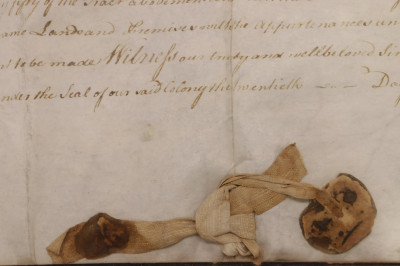 of the
ame Lands and Premises with the Appurtenances un
to be made Witness our trusty and wellbeloved Sir
nder the Seal of our said Colony the twentieth — Da